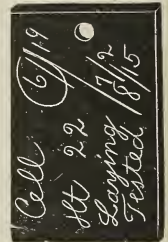 Cell 6/19
Ht 22
Laying 7/2
Tested 8/15